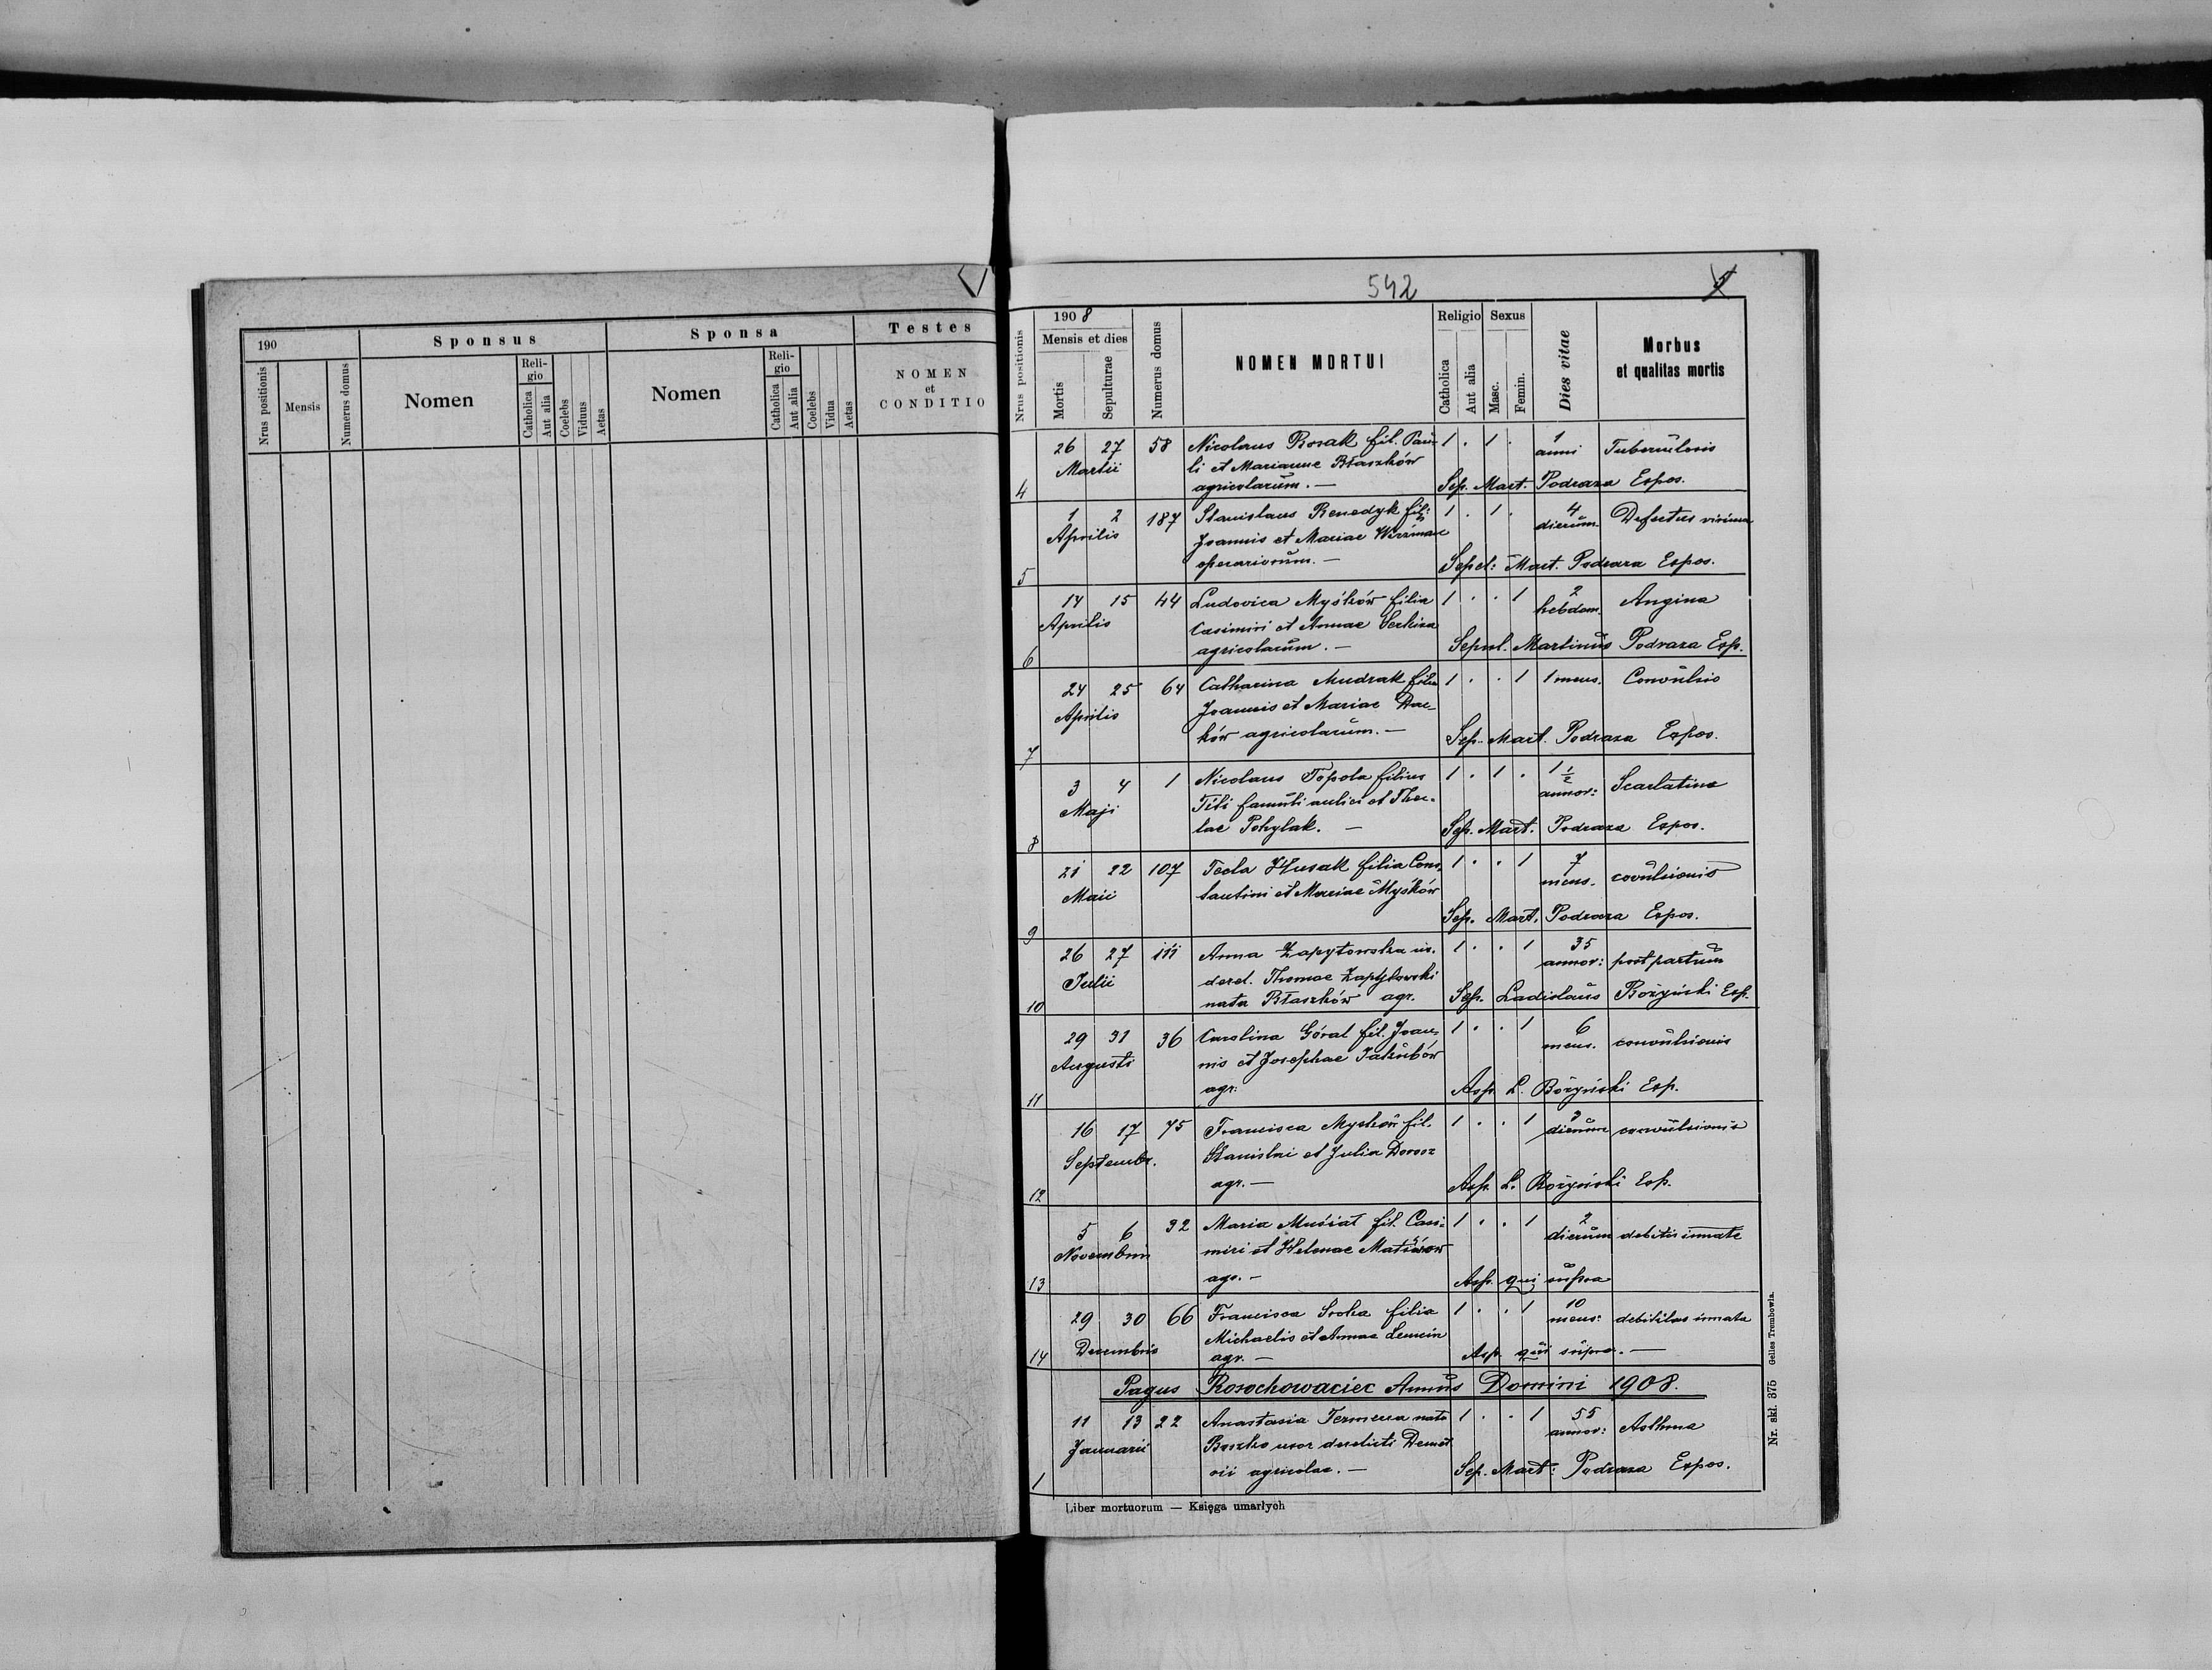 190
Sponsus
Sponsa
Testes
Nrus positionis
Mensis
Numerus domus
Nomen
Reli-
gio
Catholica
Aut alia
Coelebs
Viduus
Aetas
Nomen
Reli-
gio
Catholica
Aut alia
Coelebs
Vidua
Aetas
NOMEN
et
CONDITIO
542
Nrus positionis
1908
Mensis et dies
Mortis
Sepulturae
Numerus domus
NOMEN MORTUI
Religio
Catholica
Aut alia
Sexus
Masc.
Femin.
Dies vitae
Morbus
et qualitas mortis
26 27 58 Nicolaus Bosak fil. Pau- 1 . 1 . 1 Tuberculosis
Martii li et Mariannae Błaszków anni
4 agricolarum. — Sep. Mart. Podraza Expos.
1 2 187 Stanislaus Benedyk fil: 1 . 1 . 4 Defectus virium
Aprilis Joannis et Mariae dierum
5 operariorum. — Sepel: Mart. Podraza Expos.
14 15 44 Ludovica Myśków filia 1 . . 1 2 Angina
Aprilis Casimiri et Annae Serkiza hebdom.
6 agricolarum. — Sepul. Martinus Podraza Exp.
24 25 64 Catharina Mudrak filia 1 . . 1 1 mens. Convulsio
Aprilis Joannis et Mariae Dac-
7 ków agricolarum. — Sep. Mart. Podraza Expos.
3 4 1 Nicolaus Topola filius 1 . 1 . 1 1/2 Scarlatina
Maji Titi famuli aulici et Thec- annor:
8 lae Pohylak. — Sep. Mart. Podraza Expos.
21 22 107 Tecla Husak filia Cons- 1 . . 1 7 covulsionis
Maii tantini et Mariae Myśków mens.
9 Sep. Mart. Podraza Expos.
26 27 111 Anna Zapytowska ux. 1 . . 1 35 post partum
Julii derel. Thomae Zapytowski annor:
10 nata Błaszków agr. Sep. Ladislaus Bożyński Exp.
29 31 36 Carolina Góral fil. Joan- 1 . . 1 6 convulsionis
Augusti nis et Josephae Jakubów mens.
11 agr. Asp. L. Bożyński Exp.
16 17 75 Francisca Myśków fil. 1 . . 1 dierum convulsionis
Septembr. Stanislai et Julia Dorosz
12 agr. — Asp. L. Bożyński Exp.
5 6 32 Maria Musiał fil. Casi- 1 . . 1 2 debitis innate
Novembris miri et Helenae dierum
13 agr. — Asp. qui supra
29 30 66 Francisca Sroka filia 1 . . 1 10 debilitas innata
Decembris Michaelis et Annae mens:
14 agr. — Asp. qui supra. —
Pagus Rosochowaciec Annus Domini 1908.
11 13 22 Anastasia Termena nata 1 . . 1 55 Asthma
Januarii Boszko uxor derelicti Demet annor:
1 rii agricolae. — Sep. Mart: Podraza Expos.
Liber mortuorum — Księga umarłych
Nr. skl. 375 Gelles Trembowla.